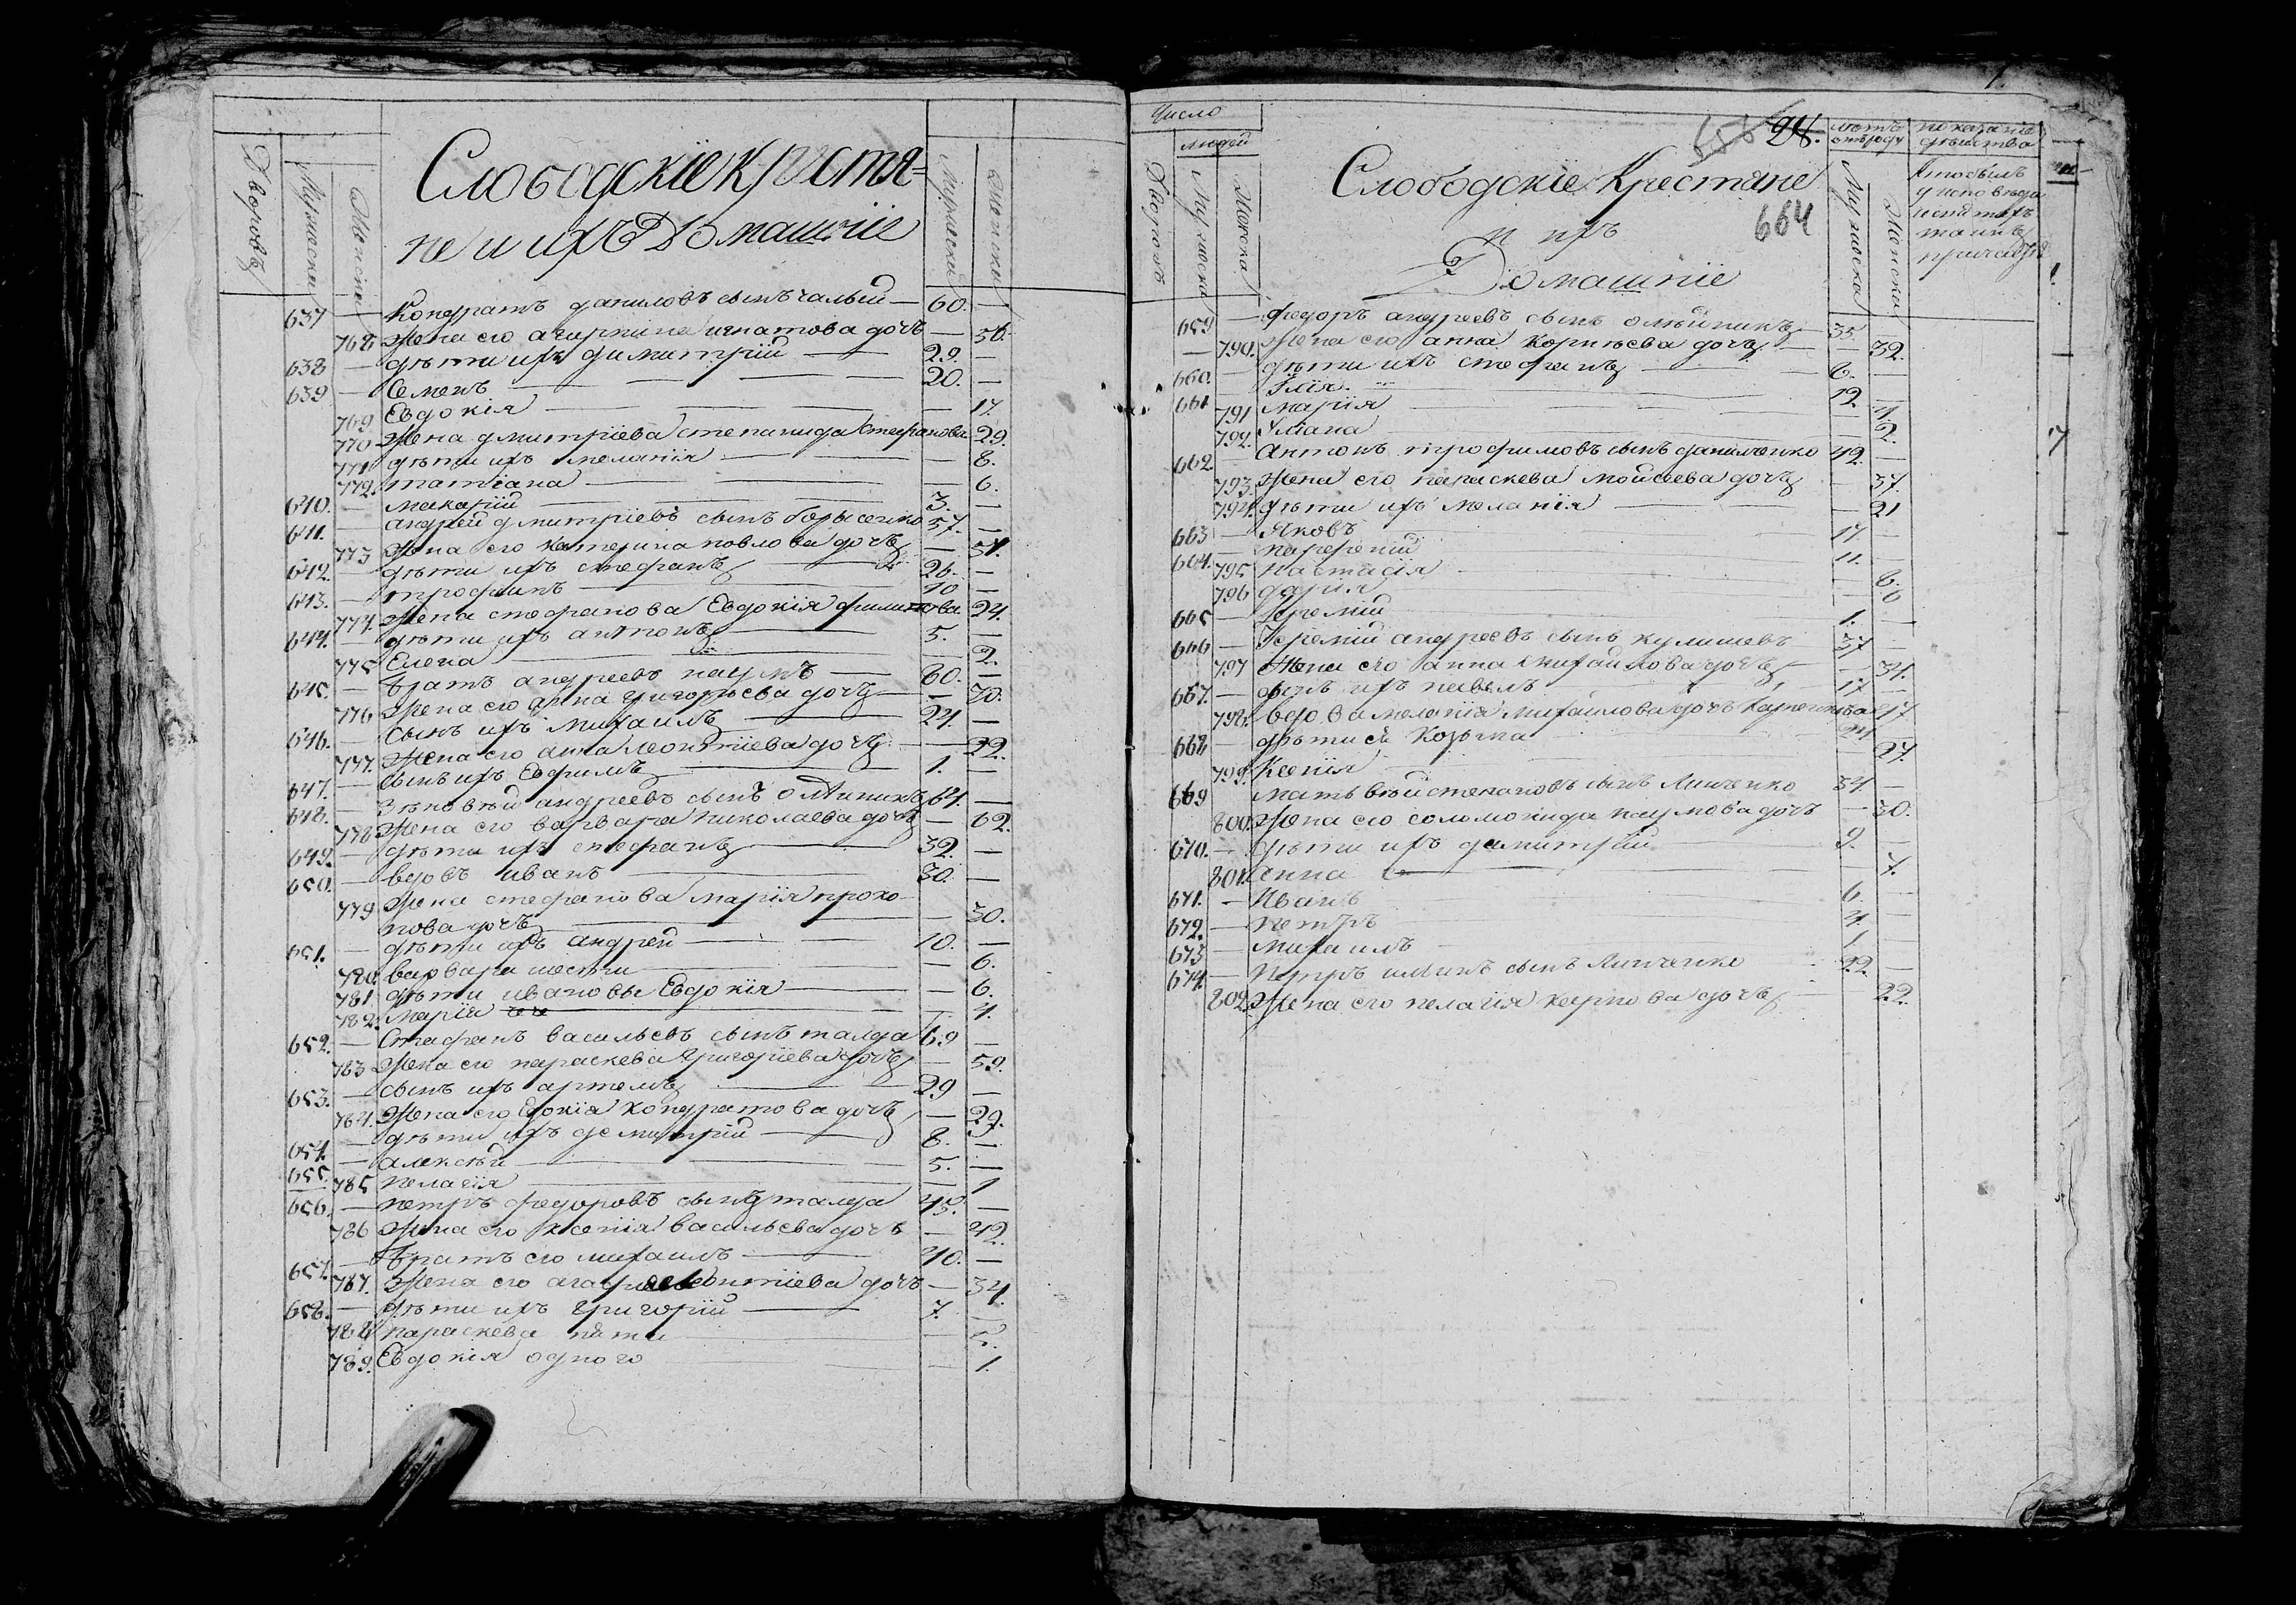 Слободскіе Крестя=
не и ихъ Домашніе
Дворовъ
Мужеска
Женска
Мужески
Женски
637 — Кондратъ даниловъ сынъ чалый — 60. —
768 Жена его агирпина игнатова дочь — 56.
638 — дѣти ихъ димитрій — 29. —
639 — Семенъ — 20. —
769. Евдокія — 17.
770 Жена дмитріева степанида Стефанова 29.
771 дѣти ихъ меланія — 8.
772. татіана — 6.
640. — макарій — 3. —
641. — андрей дмитріевъ сынъ борысенко 57. —
773 Жена его катерина павлова дочь — 51.
642. — дѣти ихъ стефанъ — 26. —
643. — трофимъ — 10 —
774. Жена стефанова Евдокія филипова 24.
644. — дѣти ихъ антонъ — 5. —
775 Елена — 2.
645. — братъ андреевъ наумъ — 60. —
776 Жена его анна григорьева дочь — 50.
646. — Сынъ ихъ михаилъ — 24. —
777. Жена его анна леонтіева дочь — 22.
647. — сынъ ихъ Евфимъ — 1. —
648. — Зѣновѣй андреевъ сынъ олѣйникъ 64. —
778 Жена его варвара николаева дочь — 62.
649. — дѣти ихъ стефанъ — 32. —
650. — вдовъ иванъ — 30. —
779 Жена стефанова марія проко-
пова дочь — 30.
651. — дѣти ихъ андрей — 10. —
780. варвара шести — 6.
781 дѣти ивановы Евдокія — 6.
782. марія — 4.
652. — Стефанъ васильевъ сынъ талда 69 —
783 Жена его параскева григоріева дочь — 59.
653. — сынъ ихъ артемъ — 29 —
784. Жена его Евдокія кондратова дочь — 29.
654. — дѣти ихъ демитрій — 8. —
655. — алексѣй — 5. —
785 пелагія — 1
656. — петръ федоровъ сынъ талда 45. —
786 Жена его ксенія васильева дочь — 42.
657. — братъ его михаилъ — 40. —
787. Жена его леонтіева дочь — 34.
658. — дѣти ихъ григорій — 7.
788 параскева пяти — 5.
789. Евдокія одного — 1.
Число
людей
Дворовъ
Мужеска
Женска
24.
664
Слободскіе Крестяне
и ихъ
Домашніе
лѣтъ
отъ роду
Мужеска
Женски
показаніе
дѣйства
Кто былъ
у исповѣди
и святыхъ
таинъ
659 — федоръ андреевъ сынъ олѣйникъ — 35.
790. Жена его анна корнѣева дочь — 32.
660. — дѣти ихъ стефанъ — 6. —
661 Илія — 12. —
791 Марія — 11.
792. Уліана — 2.
662. — Антонъ трофимовъ сынъ даниленко 42. —
793. Жена его параскева мойсеева дочь — 37.
794. дѣти ихъ меланія — 21
663 — Яковъ — 17. —
664. — парфеній — 11. —
795 настасія — 8.
796 дарія — 6
665 — Іеремій — 1. —
666 — Іеремій андреевъ сынъ кулишевъ 37 —
797 Жена его анна михайлова дочь — 31.
667. — сынъ ихъ павелъ — 17 —
798. вдова меланія михайлова дочь 47
668 — дѣти ей Козьма —
799. Ксенія — 27.
669 матвѣй степановъ сынъ Линченко 34. —
800. Жена его соломонида наумова дочь — 30.
670. — дѣти ихъ димитрій — 9. —
801. анна — 7.
671. — Иванъ 6. —
672. — петръ 4. —
673 — михаилъ 1. —
674. — Петръ сынъ Линченко 22. —
802. Жена его пелагія карпова дочь — 22.